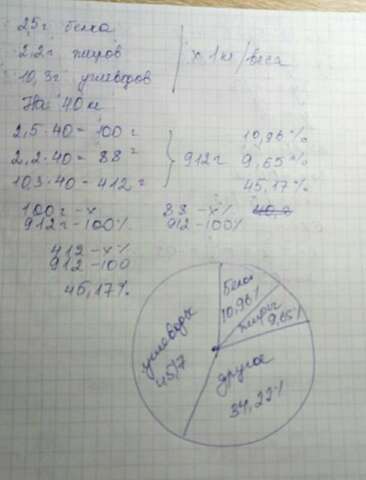 2,5г белка
2,2г жиров
10,3г углеводов
х 1кг/веса
На 40кг
2,5·40=100г
2,2·40=88г
10,3·40=412г
912г
10,96%
9,65%
45,17%
100г-х
912г-100%
88-х%
912-100%
412-х%
912-100
45,17%
белки
10,96%
жиры
9,65%
другое
34,22%
углеводы
45,17